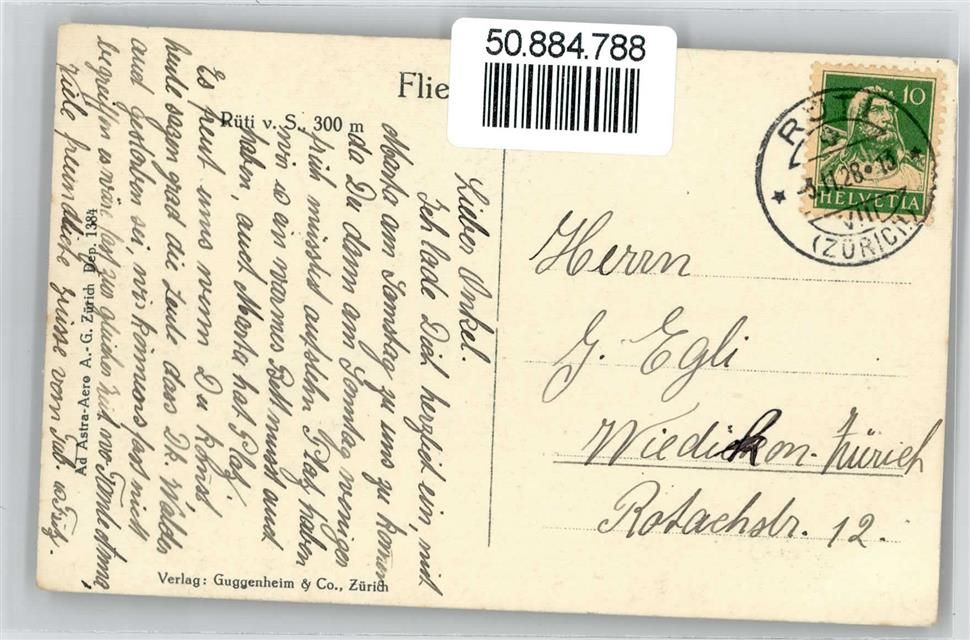 50.884.788
Flie
Rüti v. S., 300 m
Lieber Onkel.
Ich lade Dich herzlich ein, mit
Marta am Samstag zu uns zu kommen
da Du dann am Sonntag weniger
früh musst aufstehn Platz haben
wir so ein warmes Bett musst auch
haben, auch Marta hat Platz.
Es freut uns wenn Du kommst
heute sagen grad die Leute dass Dr. Walds
aud gestorben sei, wir können's fast nicht
begreiffen es wäre fast zur gleichen Zeit wo Tante
viele freundliche Grüsse von
Ad Astra-Aero A.-G. Zürich Dep. 1384
Verlag: Guggenheim & Co., Zürich
HELVETIA
10
RÜTI
VI.28.13
VIII
(ZÜRICH)
Herrn
J. Egli
Wiedikon-Zürich
Rotachstr. 12.